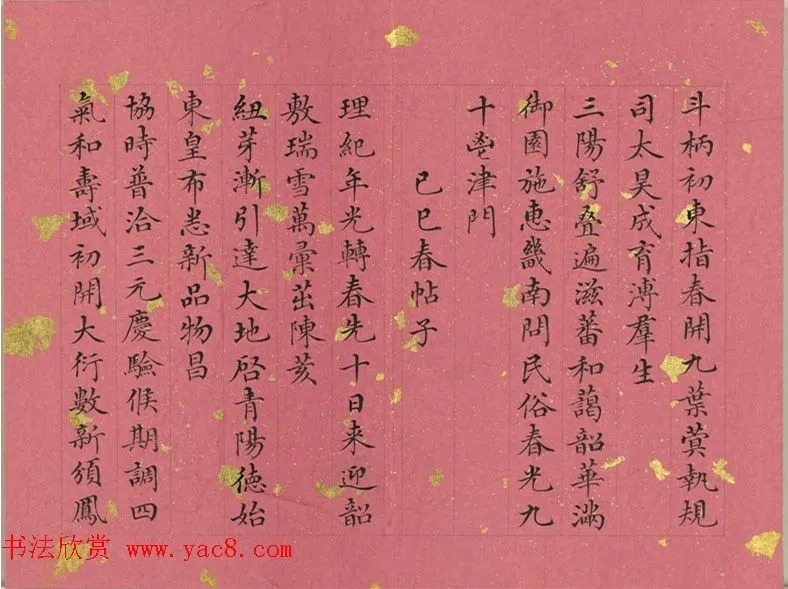 斗柄初東指春開九葉蓂執規
司太昊成育溥羣生
三陽舒叠遍滋蕃和藹韶華滿
御園施惠畿南問民俗春光九
十邕津門
己巳春帖子
理紀年光轉春先十日来迎韶
敷瑞雪萬彙茁陳荄
紐芽漸引達大地啓青陽德始
東皇布悉新品物昌
協時普洽三元慶驗候期調四
氣和壽域初開大衍數新頒鳳
书法欣赏 www.yac8.com